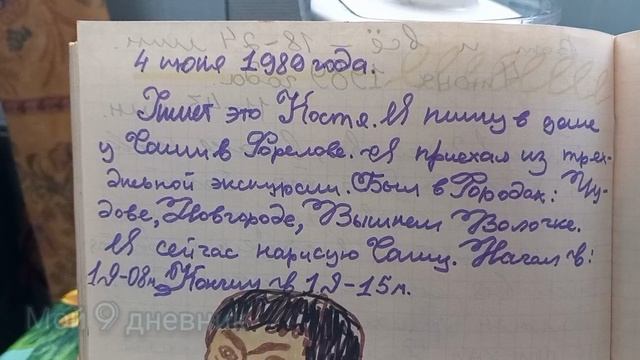 4 июня 1989 года.
Пишет это Костя. Я пишу в доме
у Саши в Горелове. Я приехал из трёх-
дневной экскурсии. Был в Городах: Чу-
дове, Новгороде, Вышнем Волочке.
Я сейчас нарисую Сашу. Начал в:
19-08м, Кончил в 19-15м.
Мой 9 дневник